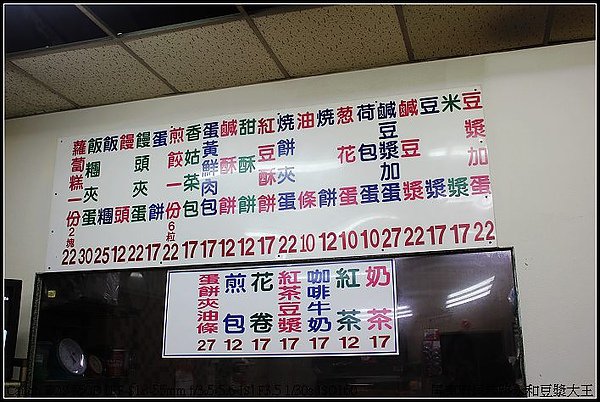 豆漿加蛋 22
米漿 17
豆漿 17
鹹豆漿 22
鹹豆漿加蛋 27
荷包蛋 10
葱花蛋 10
燒餅 12
油條 10
燒餅夾蛋 22
紅豆酥餅 17
甜酥餅 12
鹹酥餅 12
蛋黃鮮肉包 17
香菇茶包 17
煎餃一份6粒 22
蛋餅 17
饅頭夾蛋 22
饅頭 12
飯糰 25
飯糰夾蛋 30
蘿蔔糕一份2塊 22
奶茶 17
紅茶 12
咖啡牛奶 17
紅茶豆漿 17
花卷 17
煎包 12
蛋餅夾油條 27
和豆漿大王